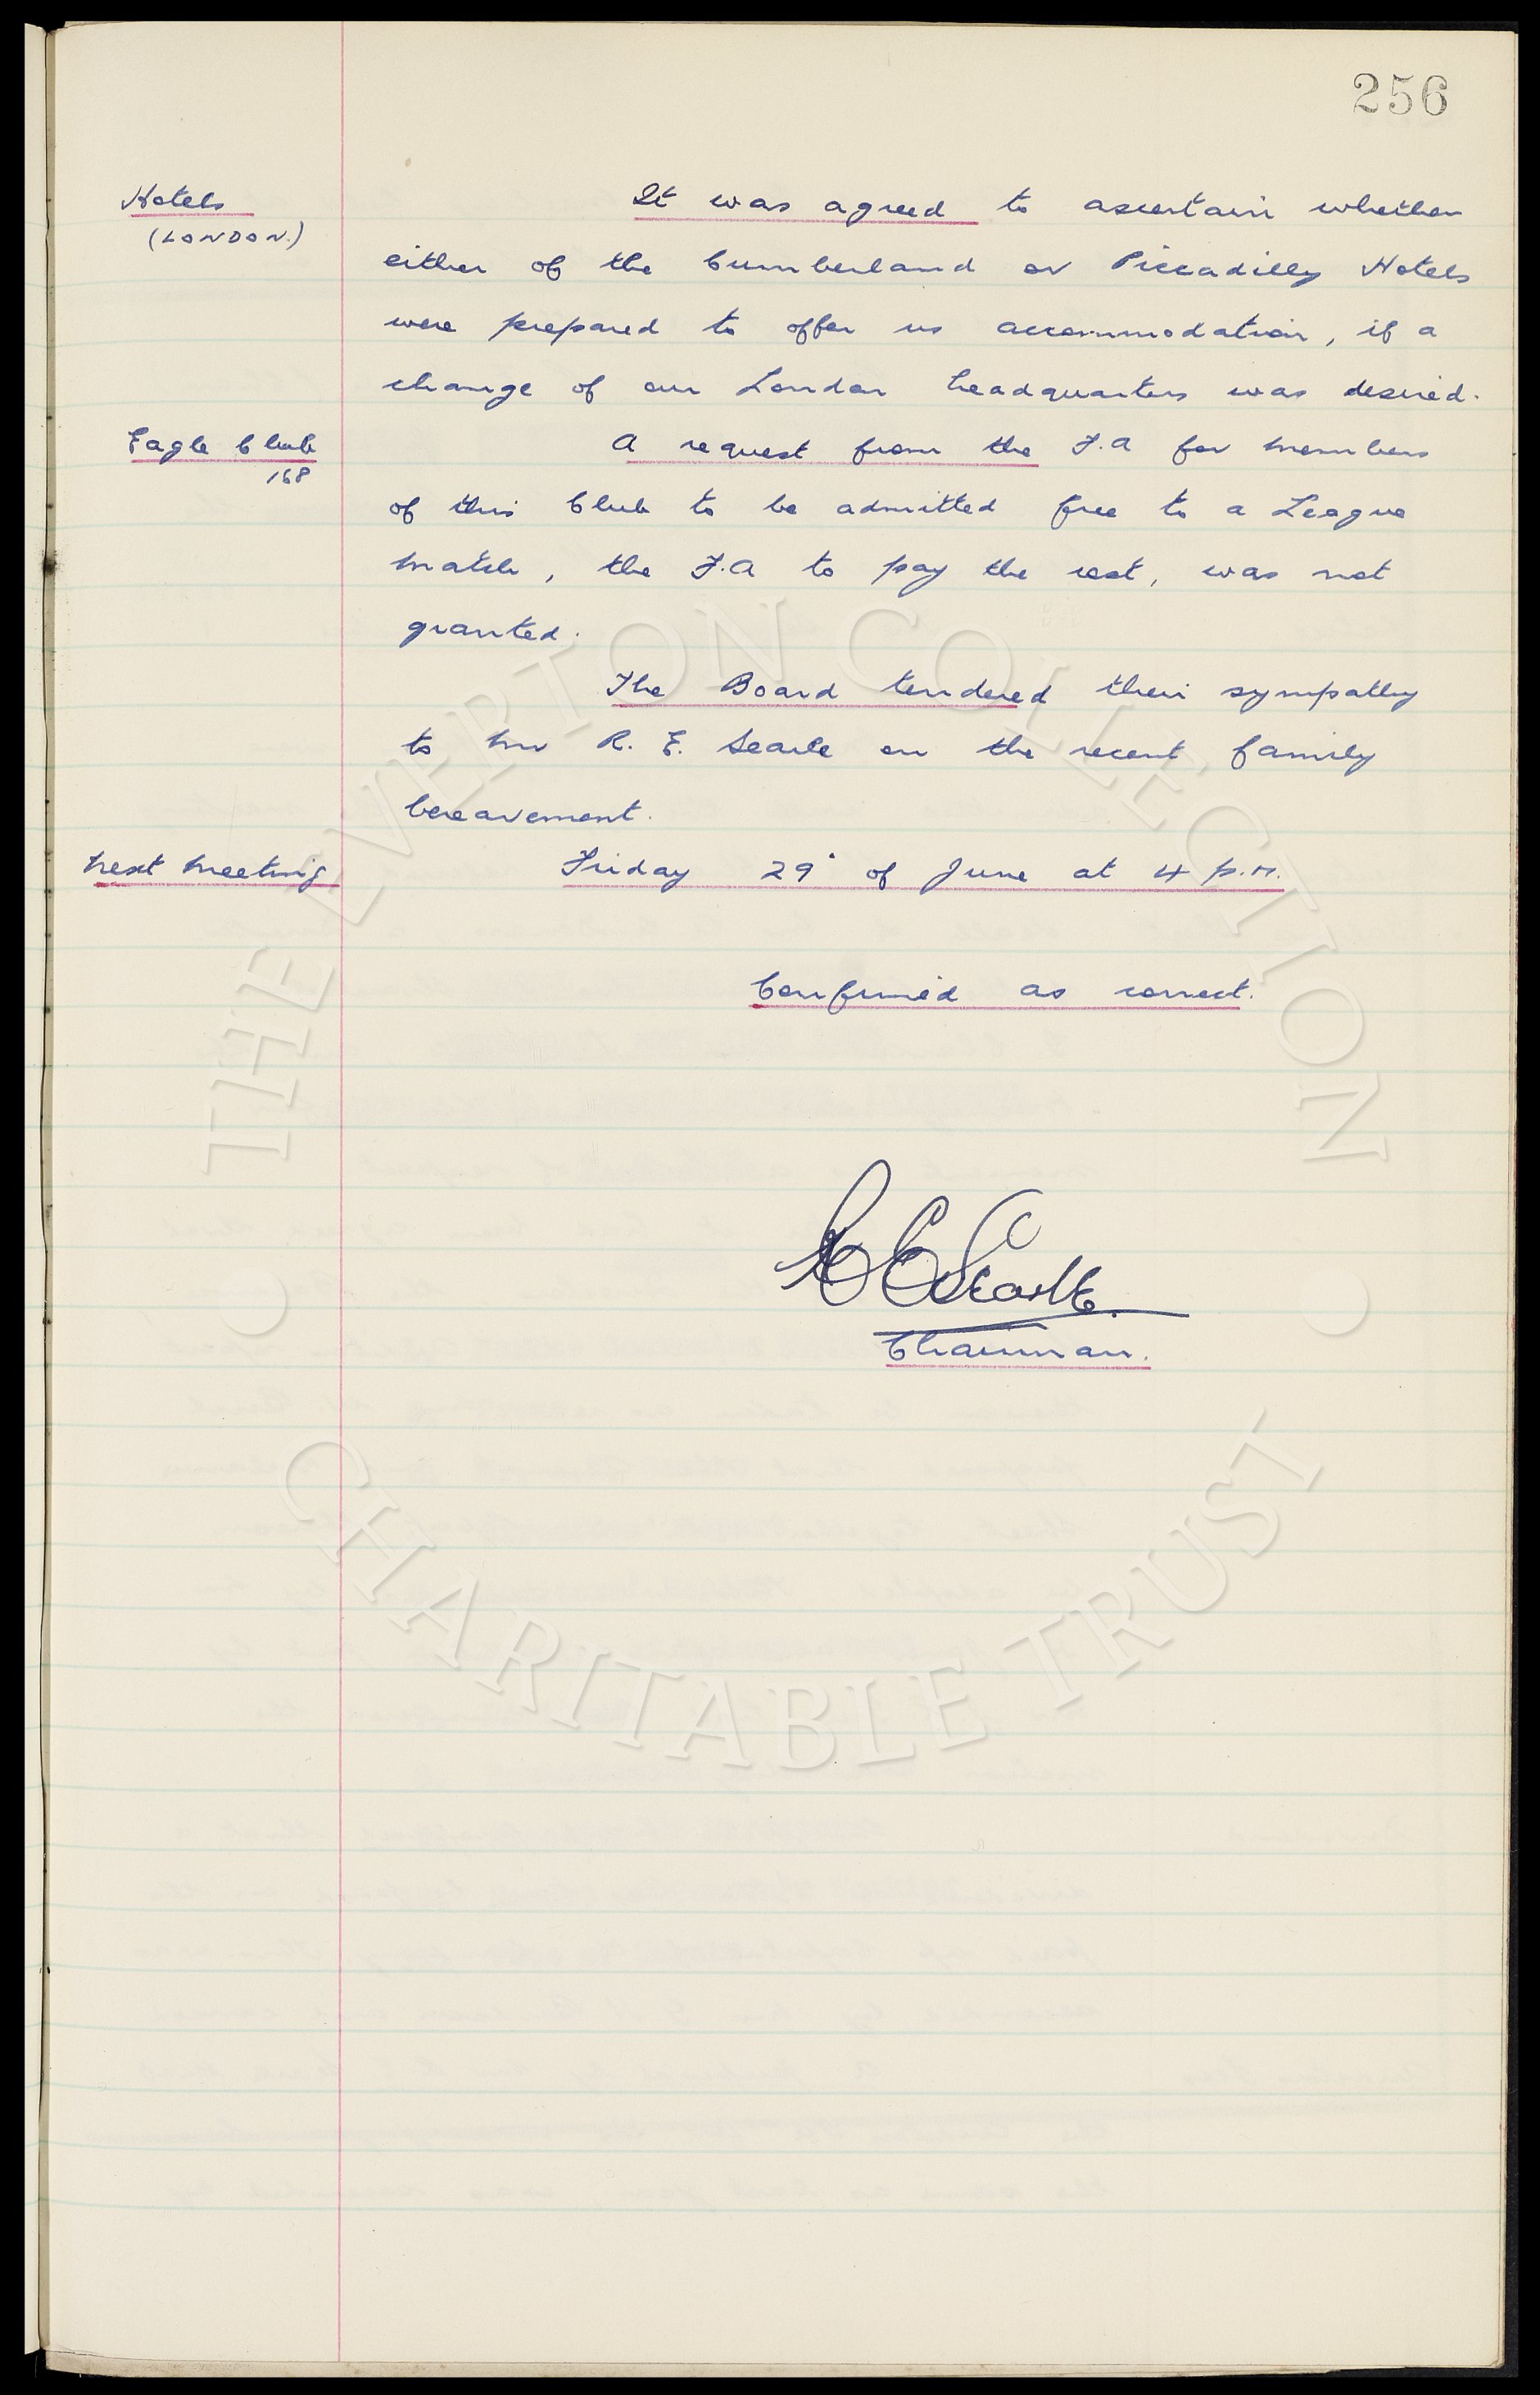 256
Hotels
(LONDON.)
It was agreed to ascertain whether
either of the Cumberland or Piccadilly Hotels
were prepared to offer us accommodation, if a
change of our London headquarters was desired.
Eagle Club
168
A request from the F.A for members
of this Club to be admitted free to a League
match, the F.A to pay the cost, was not
granted.
The Board tendered their sympathy
to Mr R. E. Searle on the recent family
bereavement.
Next Meeting
Friday 29 of June at 4 p.m.
Confirmed as correct.
Searle
Chairman.
THE EVERTON COLLECTION
CHARITABLE TRUST